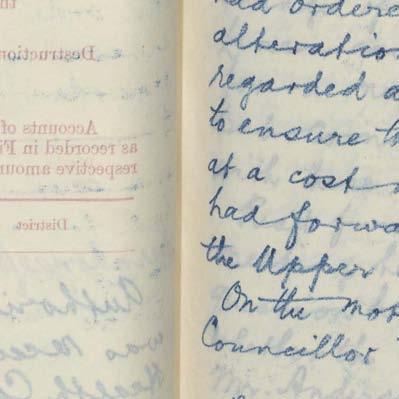 th
Destruction
Accounts of
as recorded in Fi
respective amoun
District
Authori
was
Health Co
had ordere
alteratio
regarded a
to ensure th
at a cost
had forwa
the Upper
On the mo
Councillor
Mr. Anders